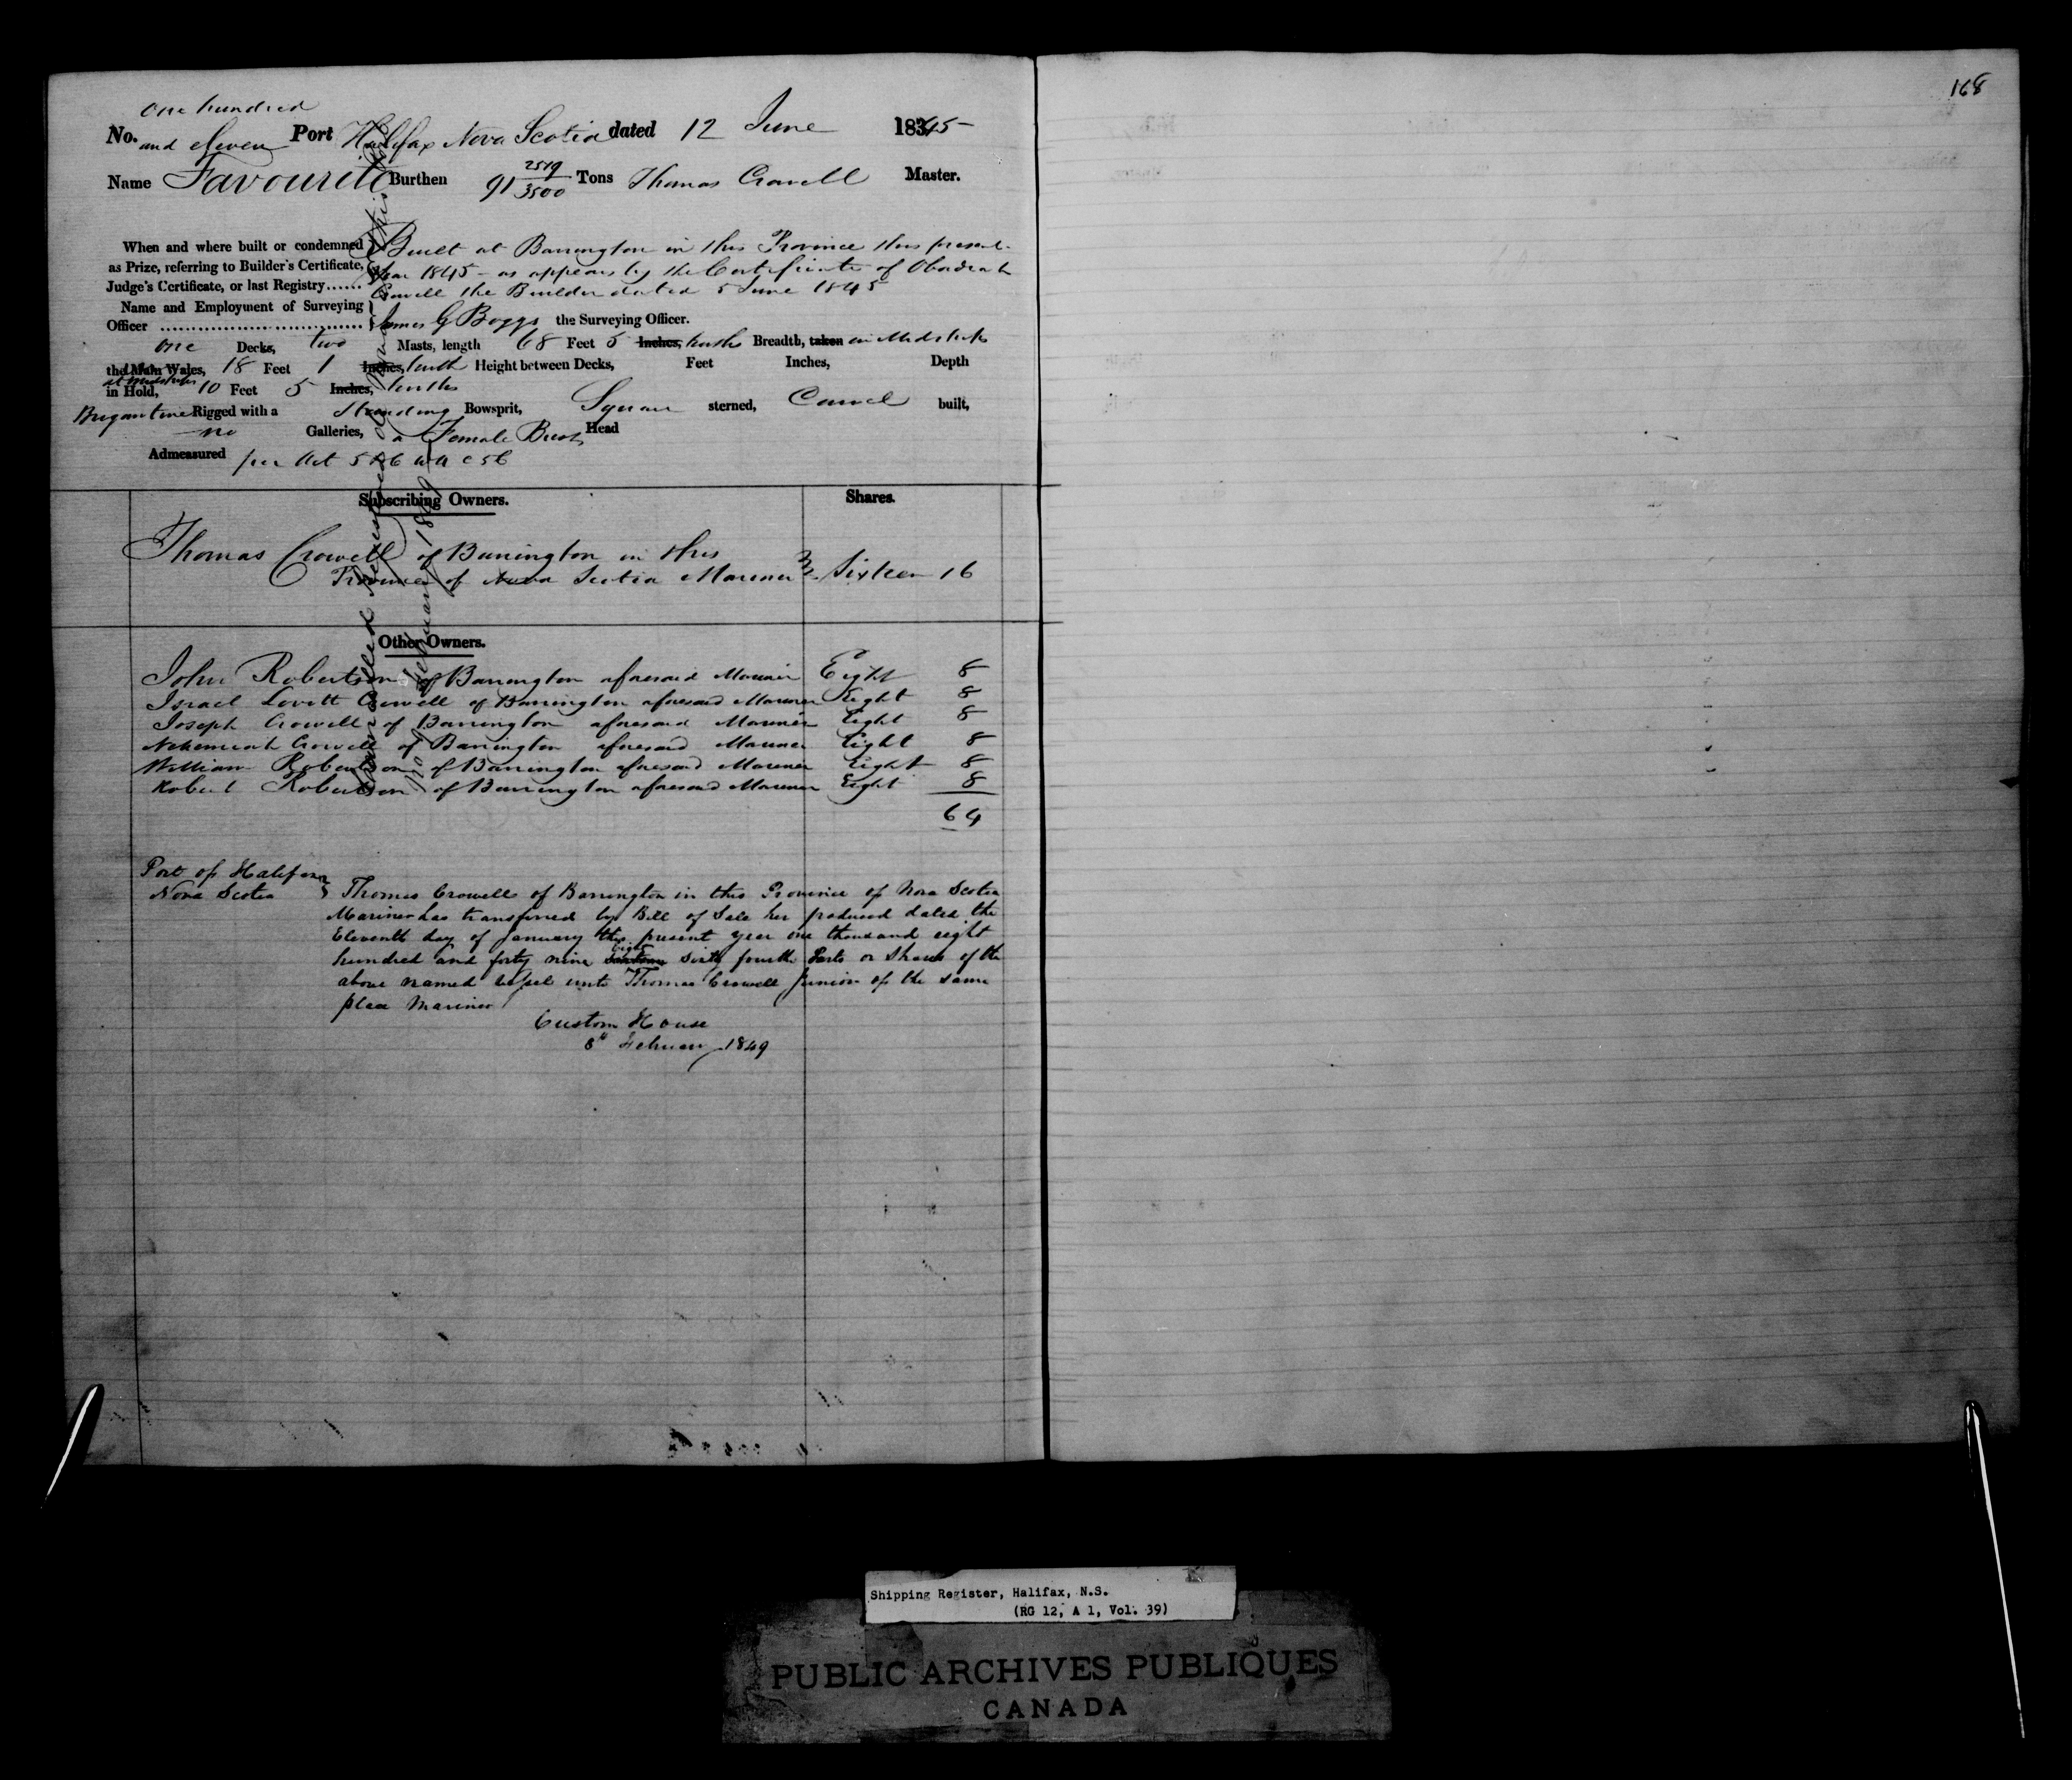 168
One hundred
No. and eleven Port Halifax Nova Scotia dated 12 June 1845
Name Favourite Burthen 91 2519/3500 Tons Thomas Crowell Master.
When and where built or condemned Built at Barrington in this Province this present
as Prize, referring to Builder's Certificate, Year 1845 - as appears by the Certificate of Obadiah
Judge's Certificate, or last Registry...... Crowell the Builder dated 5 June 1845
Name and Employment of Surveying
Officer James G Boggs the Surveying Officer.
One Decks, two Masts, length 68 Feet 5 Inches, tenths Breadth, taken in Midships
the Main Wales, 18 Feet 1 Inches, tenth Height between Decks, Feet Inches, Depth
at Midships
in Hold, 10 Feet 5 Inches, tenths
Brigantine Rigged with a Standing Bowsprit, Square sterned, Carvel built,
no Galleries, a Female Bust Head
Admeasured per Act 5 & 6 c 56
Subscribing Owners. Shares.
Thomas Crowell of Barrington in this
Province of Nova Scotia Mariner Sixteen 16
Other Owners.
John Robertson of Barrington aforesaid Mariner Eight 8
Israel Lovitt Crowell of Barrington aforesaid Mariner Eight 8
Joseph Crowell of Barrington aforesaid Mariner Eight 8
Nehemiah Crowell of Barrington aforesaid Mariner Eight 8
William Robertson of Barrington aforesaid Mariner Eight 8
Robert Robertson of Barrington aforesaid Mariner Eight 8
64
Port of Halifax
Nova Scotia Thomas Crowell of Barrington in this Province of Nova Scotia
Mariner has transferred by Bill of Sale her produced dated the
Eleventh day of January this present year one thousand eight
hundred and forty nine eight sixty fourth Parts or Shares of the
above named Vessel unto Thomas Crowell Junior of the same
place Mariner
Custom House
8th February 1849
Shipping Register, Halifax, N.S.
(RG 12, A 1, Vol. 39)
PUBLIC ARCHIVES PUBLIQUES
CANADA